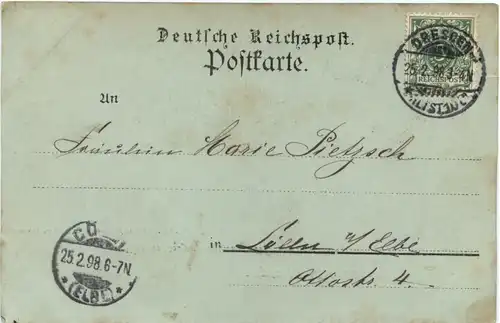 Deutsche Reichspost.
Postkarte.
DRESDEN
25.2.98.3-4N
ALTST.
REICHSPOST
An
Fräulein Marie Pietzsch
in Cölln a/Elbe
Ottostr. 4.
CÖ
25.2.98.6-7N
(ELBE)